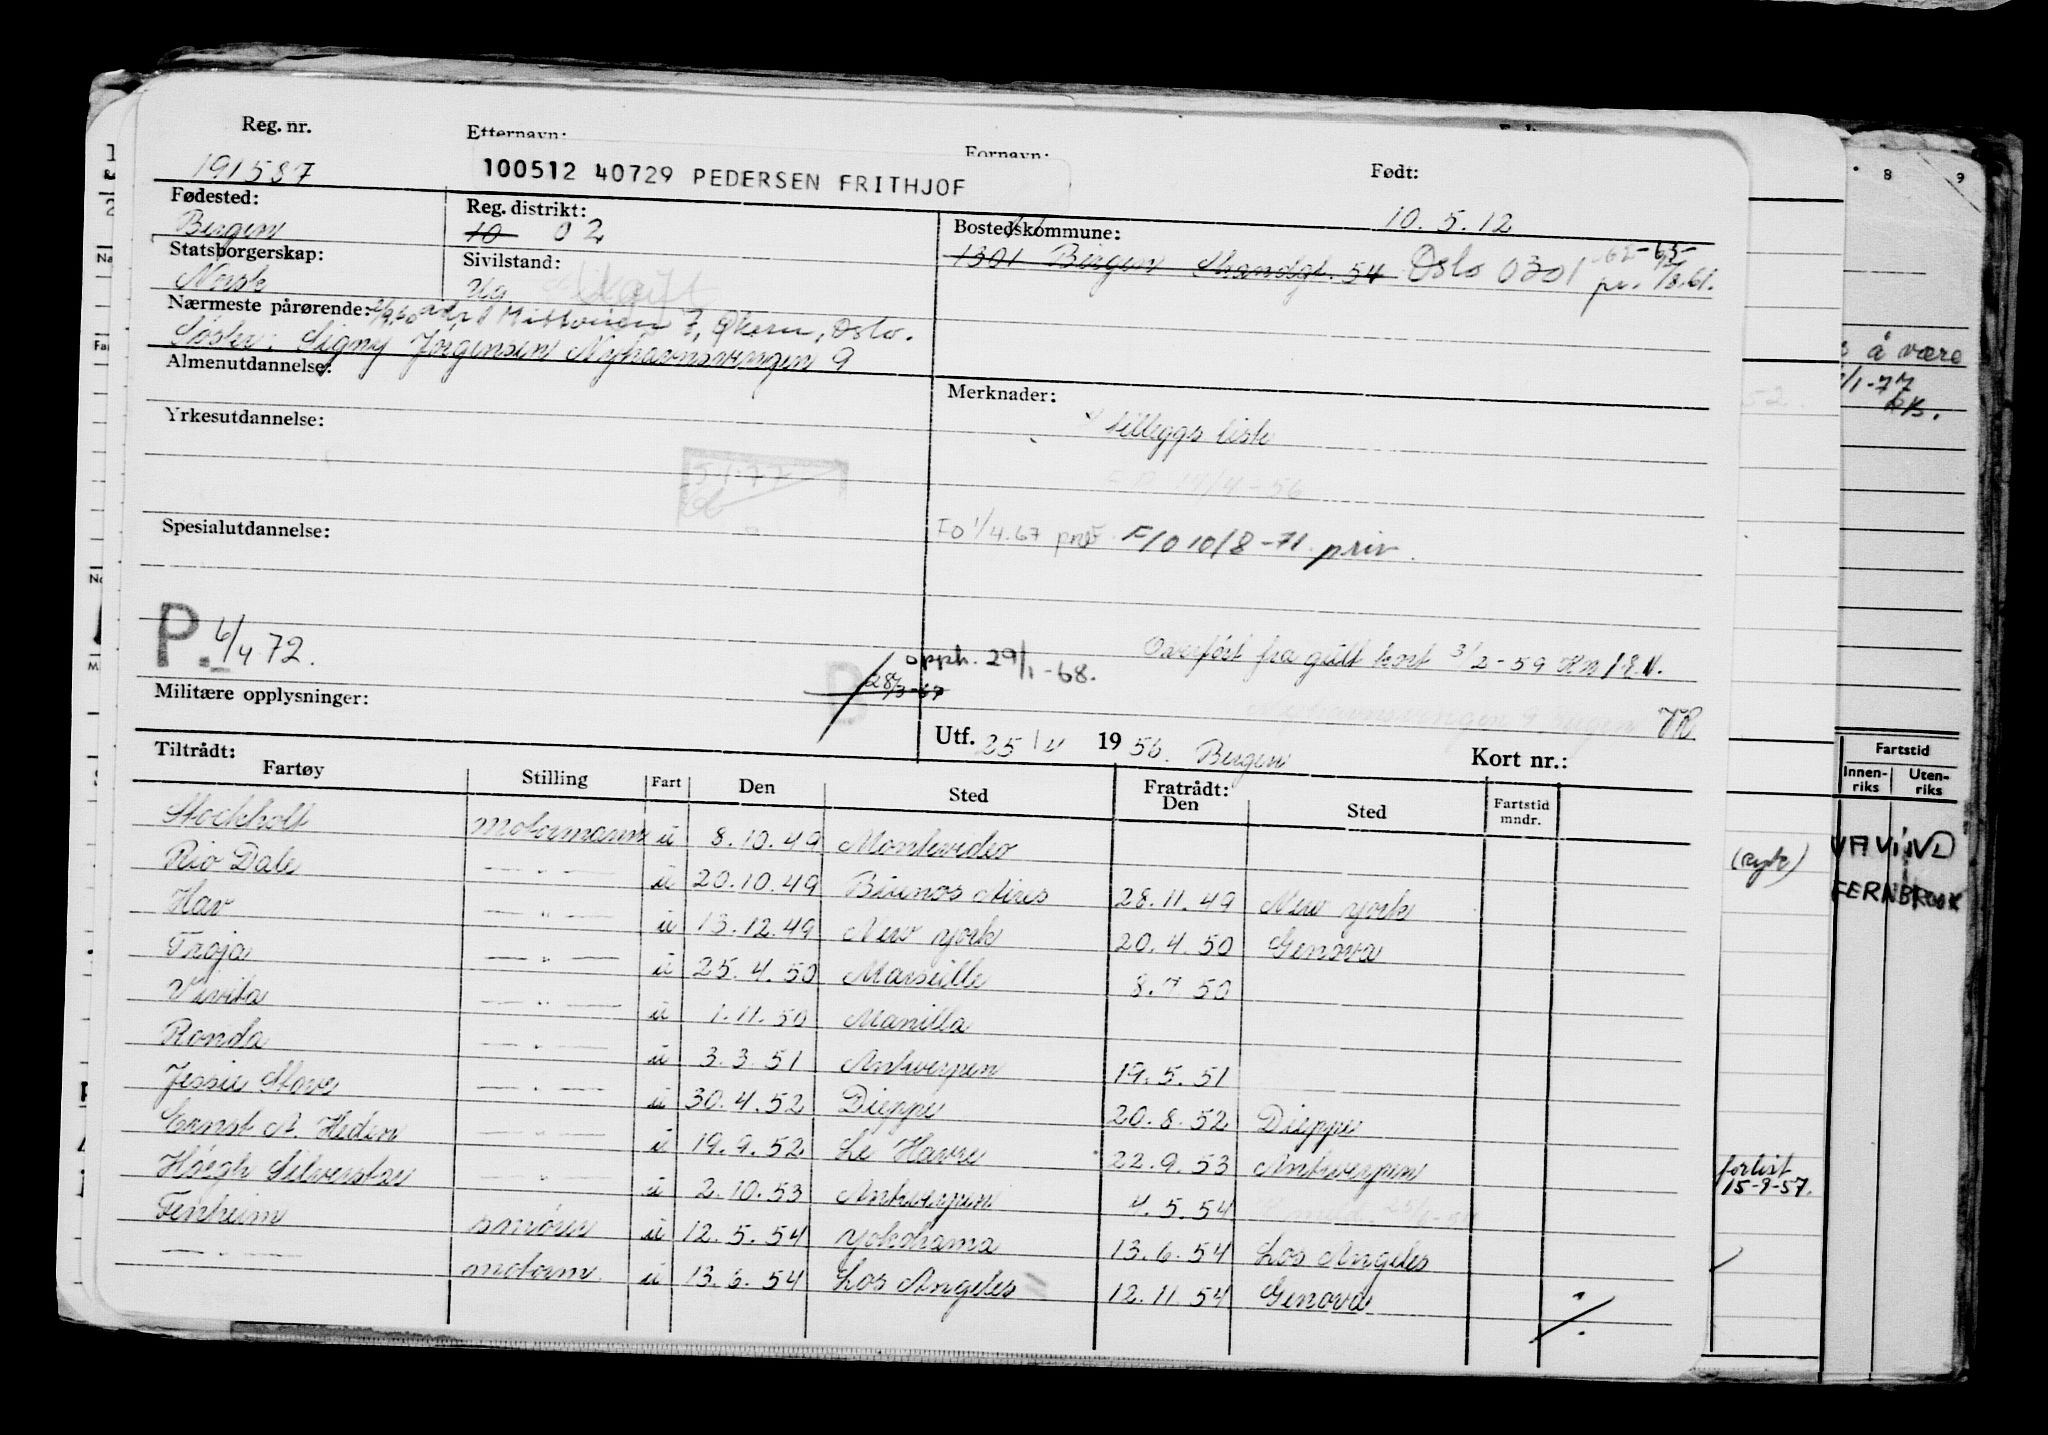 Reg. nr. Etternavn: Fornavn: Født:
191587 100512 40729 PEDERSEN FRITHJOF 10.5.12
Fødested: Reg. distrikt: Bostedskommune:
Bergen 10 02 1301 Bergen Strandgt. 54 Oslo 0301
Statsborgerskap: Sivilstand:
Norsk Ug
Nærmeste pårørende:
Søster: Signy Jørgensen Nyhavnsvingen 9
Almenutdannelse: Merknader:
tilleggs liste
Yrkesutdannelse:
5-1-77
Spesialutdannelse: FO 1/4.67 prøv. F/O 10/8-71 priv.
P. 6/4 72.
Overført fra gult kort 3/2-59
opph. 29/1-68.
28/3-67
Militære opplysninger:
Utf. 25/4 1956. Bergen Kort nr.:
Tiltrådt: Fratrådt:
Fartøy Stilling Fart Den Sted Den Sted Fartstid mndr.
Stockholt motormann u 8.10.49 Montevideo
Rio Dale — " — u 20.10.49 Buenos Aires 28.11.49 New York
Hav — " — u 13.12.49 New York 20.4.50 Genova
Troja — " — u 25.4.50 Marseille 8.7 50
Vivita — " — u 1.11.50 Manilla
Ronda — " — u 3.3.51 Antwerpen 19.5.51
Jessie Stove — " — u 30.4.52 Dieppe 20.8.52 Dieppe
Ernst A. Heden — " — u 19.9.52 Le Havre 22.9.53 Antwerpen
Høegh Silverstar — " — u 2.10.53 Antwerpen 4.5.54
Fenheim smører u 12.5.54 Yokohama 13.6.54 Los Angeles
— " — motorm. u 13.6.54 Los Angeles 12.11.54 Genova
8 9
å være
1-77
Fartstid
Innen-riks Uten-riks
FERNBROOK
forlist
15-9-57.